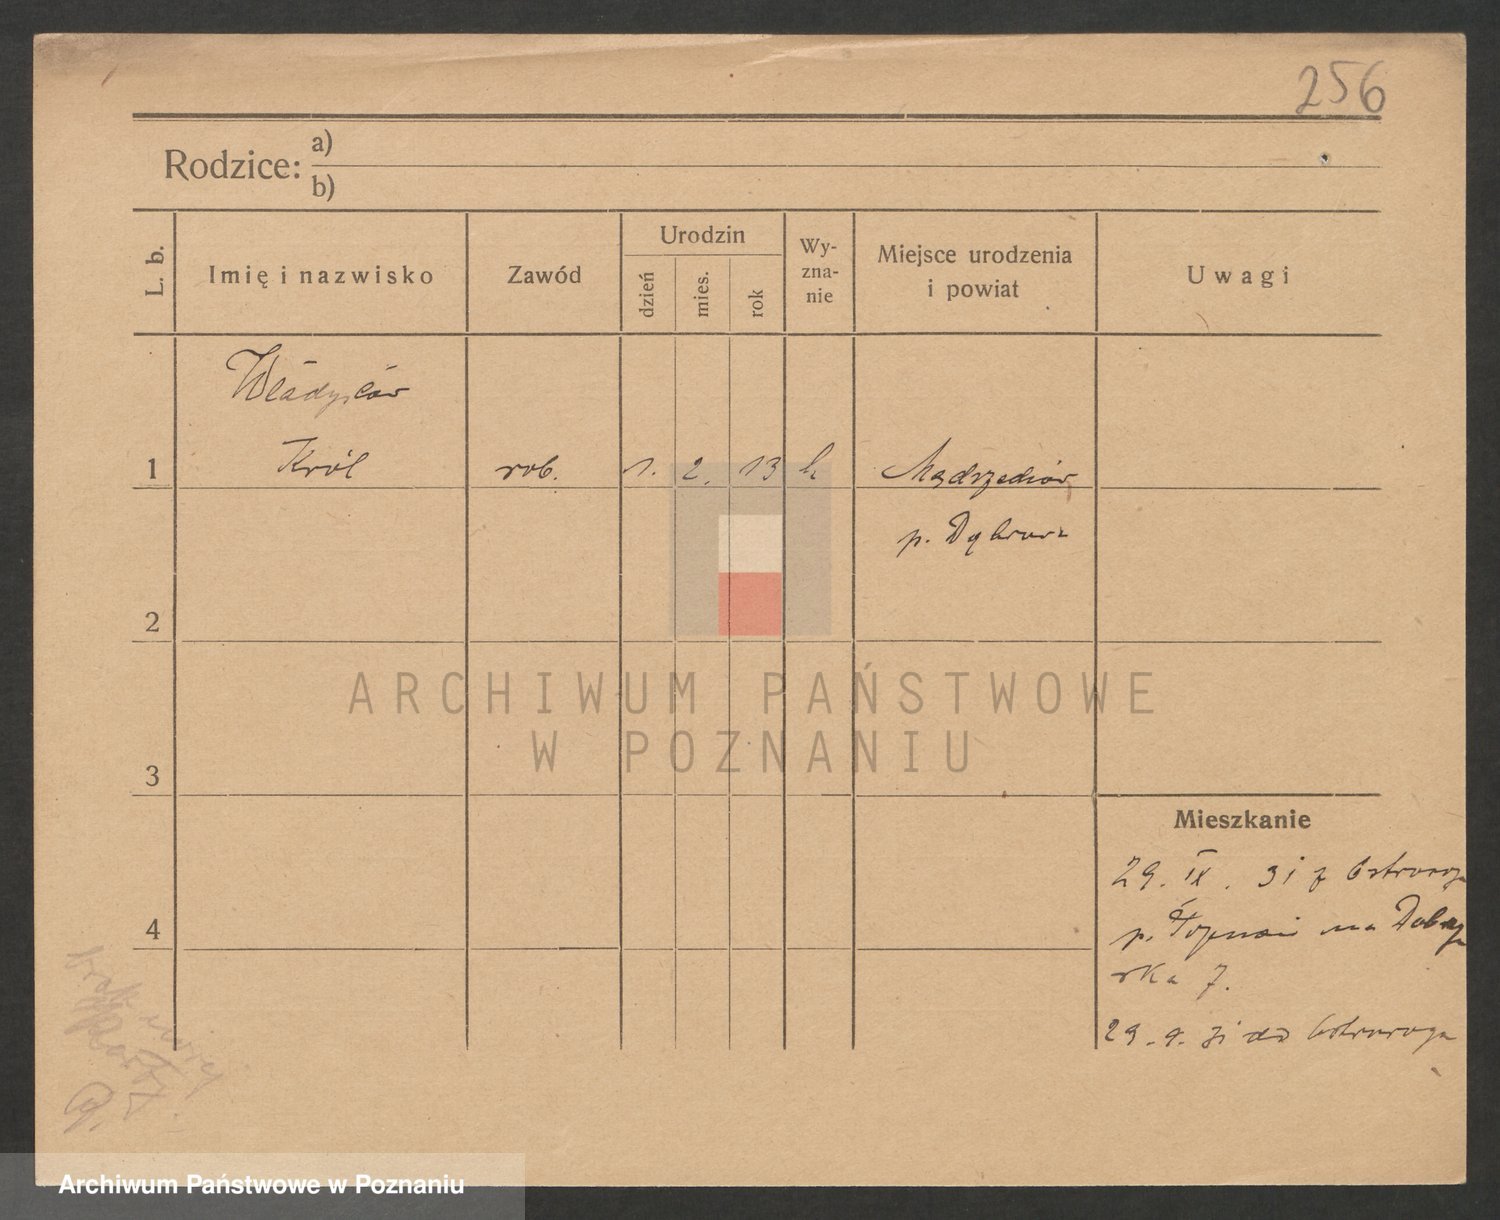 256
Rodzice: a)
b)
L. b.
Imię i nazwisko
Zawód
Urodzin
dzień
mies.
rok
Wy-
zna-
nie
Miejsce urodzenia
i powiat
Uwagi
Władysław
1 Król rob. 1. 2. 13 k
p. Dąbrowa
2
ARCHIWUM PAŃSTWOWE
W POZNANIU
3
Mieszkanie
29. IX. 31 z Ostroroga
p. na
4
rka 7.
29. 9. 31 do Ostroroga
brak
karty
Archiwum Państwowe w Poznaniu